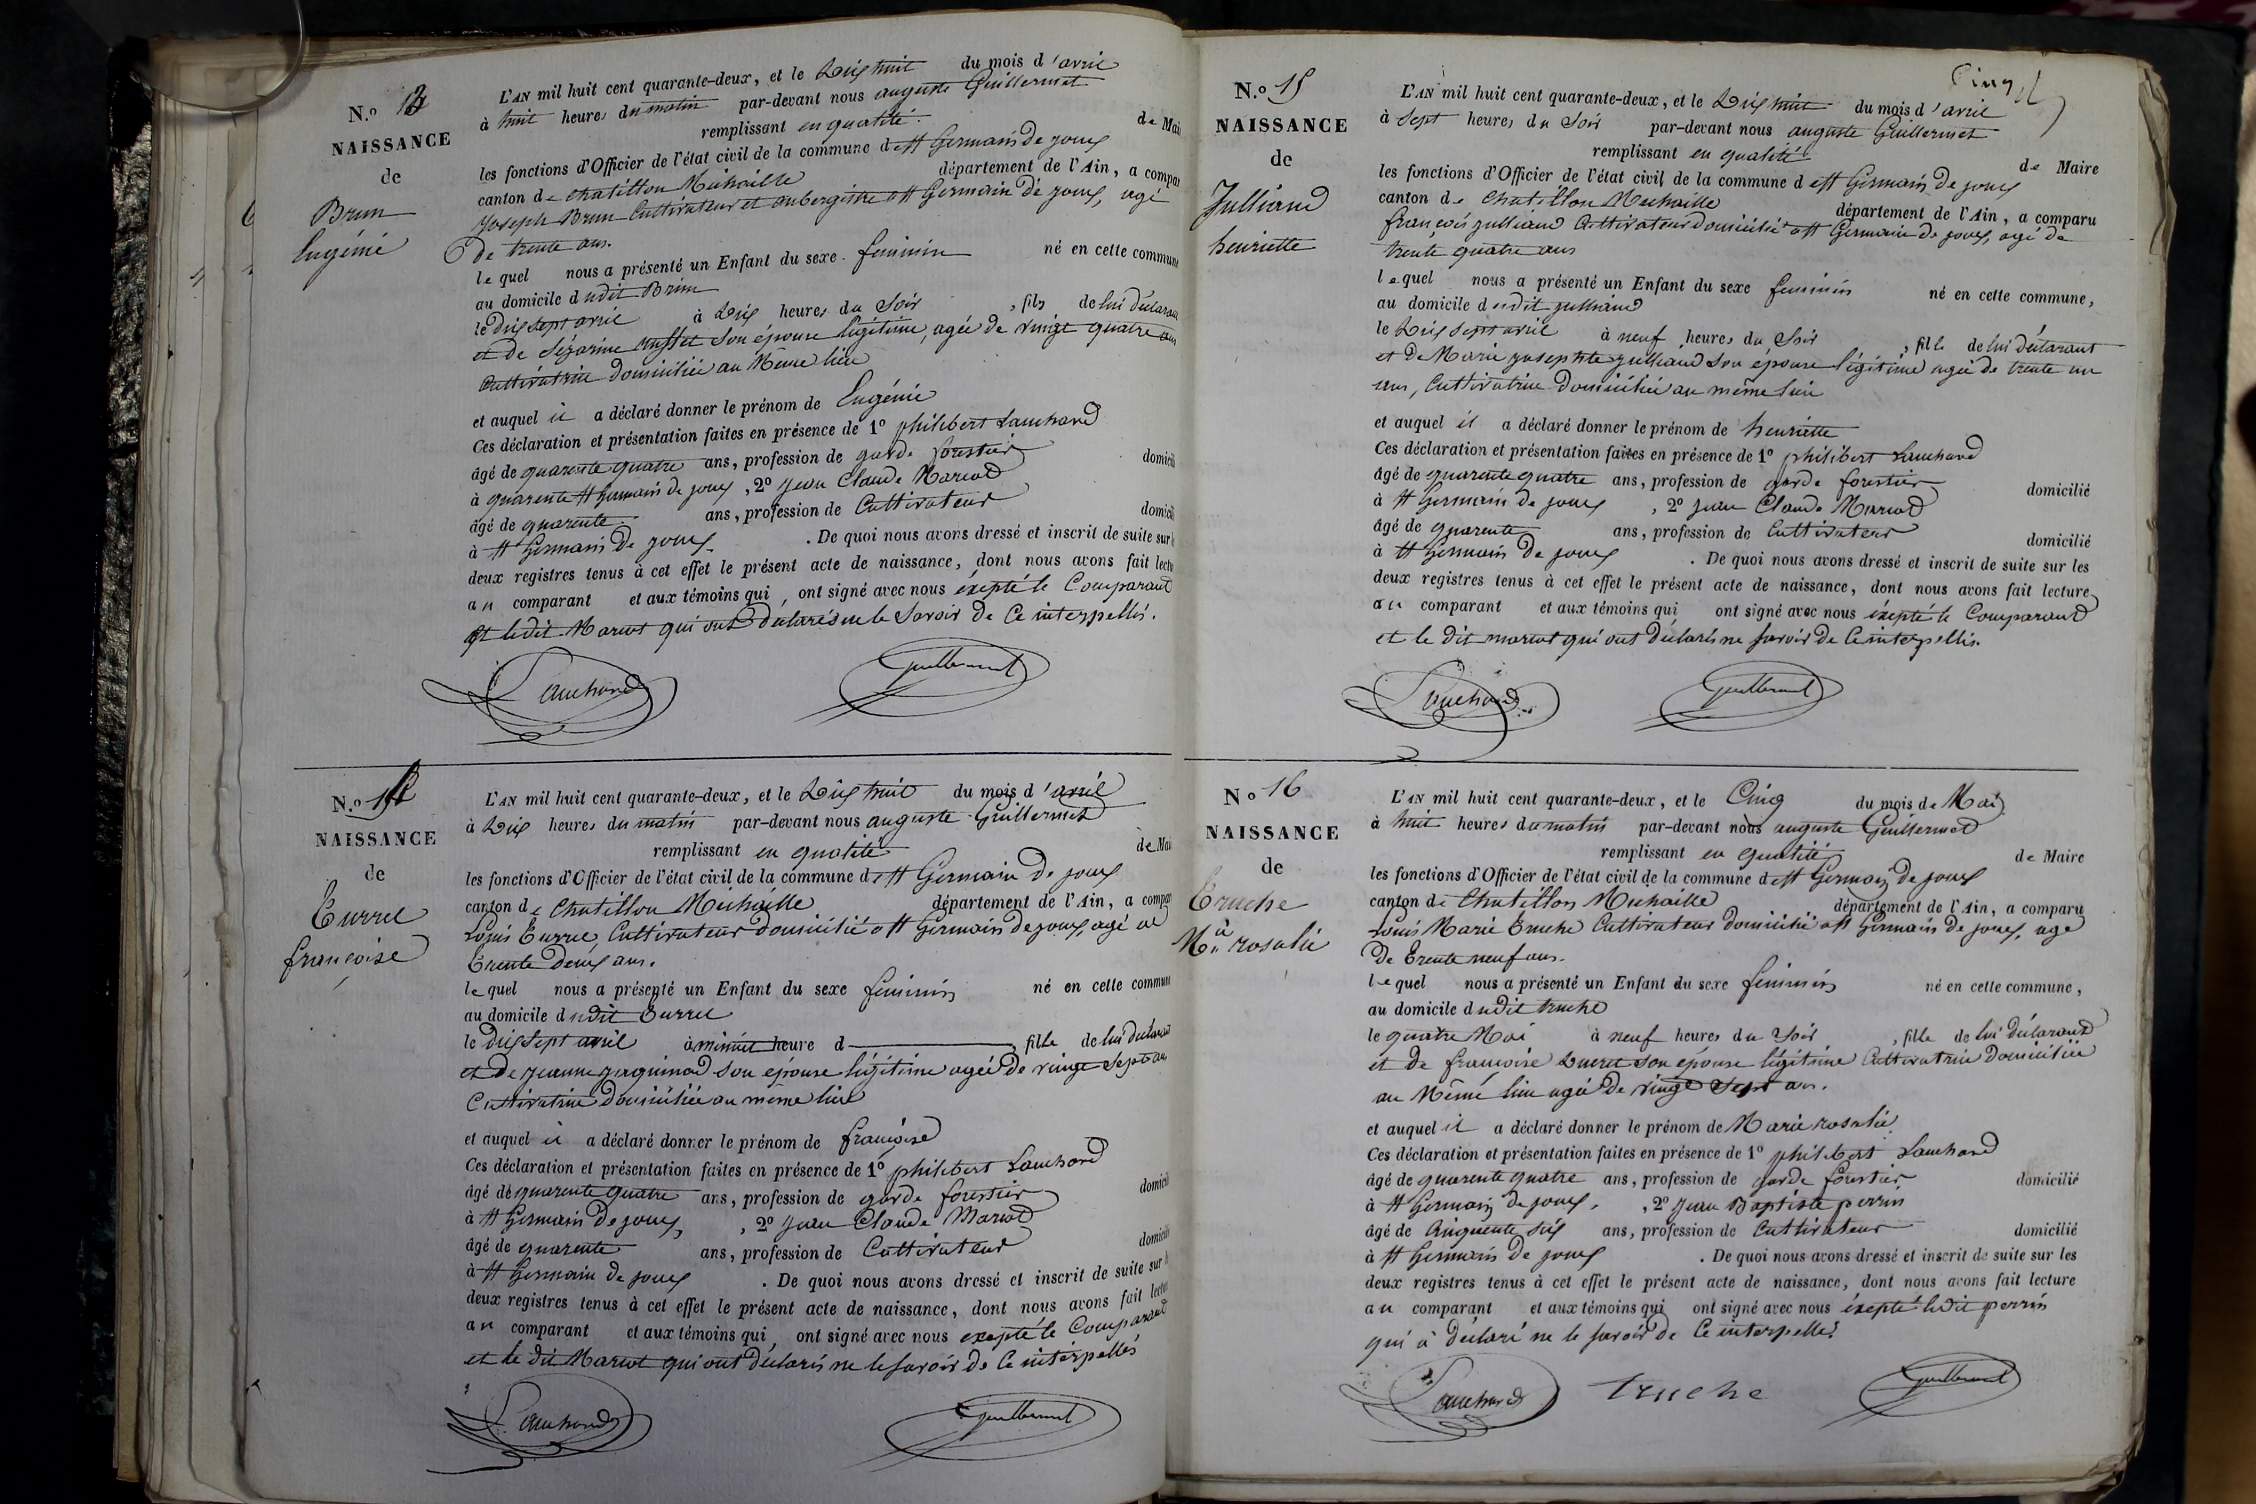 N.o 13
NAISSANCE
de
Brun
Eugénie
L'AN mil huit cent quarante-deux, et le Dix huit du mois d'avril
à huit heures du matin par-devant nous auguste Guillermet
remplissant en qualité de Mai
les fonctions d'Officier de l'état civil de la commune de St Germain de joux
canton de Chatillon Michaille département de l'Ain, a compar
Joseph Brun Cultivateur et aubergiste à St Germain de joux, agé
de trente ans.
lequel nous a présenté un Enfant du sexe feminin né en cette commune
au domicile dudit Brun
le dix sept avril à Dix heures du Soir , fils de lui déclarant
et de Sézarine son épouse légitime, agée de vingt quatre ans
Cultivatrice domiciliée au Même lieu
et auquel il a déclaré donner le prénom de Eugénie
Ces déclaration et présentation faites en présence de 1o philibert Lauchard
âgé de quarente quatre ans, profession de garde forestier domicili
à quarente St Germain de joux , 2o Jean Claude Mariod
âgé de quarente ans, profession de Cultivateur domicili
à St Germain de joux . De quoi nous avons dressé et inscrit de suite sur
deux registres tenus à cet effet le présent acte de naissance, dont nous avons fait lectu
au comparant et aux témoins qui, ont signé avec nous éxepté le Comparant
et ledit Mariod qui ont déclarés ne le Savoir de Ce interpellés.
Lauchard Guillermet
N.o 14
NAISSANCE
de
Turrel
françoise
L'AN mil huit cent quarante-deux, et le Dix huit du mois d'avril
à Dix heures du matin par-devant nous auguste Guillermet
remplissant en qualité de Mai
les fonctions d'Officier de l'état civil de la commune de St Germain de joux
canton de Chatillon Michaille département de l'Ain, a compar
Louis Turrel, Cultivateur domicilié à St Germain de joux, agé de
Trente deux ans.
lequel nous a présenté un Enfant du sexe feminin né en cette commun
au domicile dudit Turrel
le dix sept avril à minuit heure d , fille de lui déclarant
et de Jeanne jaquinod son épouse légitime agée de vingt sept ans
Cultivatrice domiciliée au même lieu
et auquel il a déclaré donner le prénom de françoise
Ces déclaration et présentation faites en présence de 1o philibert Lauchard
âgé de quarente quatre ans, profession de garde forestier domicili
à St Germain de joux, , 2o Jean Claude Mariod
âgé de quarente ans, profession de Cultivateur domicili
à St Germain de joux . De quoi nous avons dressé et inscrit de suite sur l
deux registres tenus à cet effet le présent acte de naissance, dont nous avons fait lectur
au comparant et aux témoins qui, ont signé avec nous exepté le Comparant
et le dit Mariod qui ont déclarés ne le Savoir de Ce interpellés
Lauchard Guillermet
Cinq
N.o 15
NAISSANCE
de
Julliand
henriette
L'AN mil huit cent quarante-deux, et le Dix huit du mois d'avril
à Sept heures du Soir par-devant nous auguste Guillermet
remplissant en qualité de Maire
les fonctions d'Officier de l'état civil de la commune de St Germain de joux
canton de Chatillon Michaille département de l'Ain, a comparu
françois julliand Cultivateur domicilié à St Germain de joux, agé de
trente quatre ans
lequel nous a présenté un Enfant du sexe feminin né en cette commune,
au domicile dudit julliand
le Dix sept avril à neuf heures du Soir , fille de lui déclarant
et de Marie josephte julliand son épouse légitime agée de trente un
ans, Cultivatrice domiciliée au même lieu
et auquel il a déclaré donner le prénom de henriette
Ces déclaration et présentation faites en présence de 1o philibert Lauchard
âgé de quarente quatre ans, profession de garde forestier domicilié
à St Germain de joux , 2o Jean Claude Mariod
âgé de quarente ans, profession de Cultivateur domicilié
à St Germain de joux . De quoi nous avons dressé et inscrit de suite sur les
deux registres tenus à cet effet le présent acte de naissance, dont nous avons fait lecture
au comparant et aux témoins qui ont signé avec nous éxepté le Comparant
et le dit mariod qui ont déclarés ne savoir de Ce interpellés.
Lauchard Guillermet
No 16
NAISSANCE
de
Truche
Mie rosalie
L'AN mil huit cent quarante-deux, et le Cinq du mois de Mai
à huit heures du matin par-devant nous auguste Guillermet
remplissant en qualité de Maire
les fonctions d'Officier de l'état civil de la commune de St Germain de joux
canton de Chatillon Michaille département de l'Ain, a comparu
Louis Marie Truche Cultivateur domicilié à St Germain de joux, agé
de Trente neuf ans.
lequel nous a présenté un Enfant du sexe feminin né en cette commune,
au domicile dudit truche
le quatre Mai à neuf heures du Soir , fille de lui déclarant
et de françoise Ducret son épouse légitime Cultivatrice domiciliée
au Même lieu agée de vingt sept ans.
et auquel il a déclaré donner le prénom de Marie rosalie
Ces déclaration et présentation faites en présence de 1o philibert Lauchard
âgé de quarente quatre ans, profession de garde forestier domicilié
à St Germain de joux, , 2o Jean Baptiste perrin
âgé de Cinquente six ans, profession de Cultivateur domicilié
à St Germain de joux . De quoi nous avons dressé et inscrit de suite sur les
deux registres tenus à cet effet le présent acte de naissance, dont nous avons fait lecture
au comparant et aux témoins qui ont signé avec nous éxepté ledit perrin
qui à déclaré ne le savoir de Ce interpellé.
Lauchard truche Guillermet